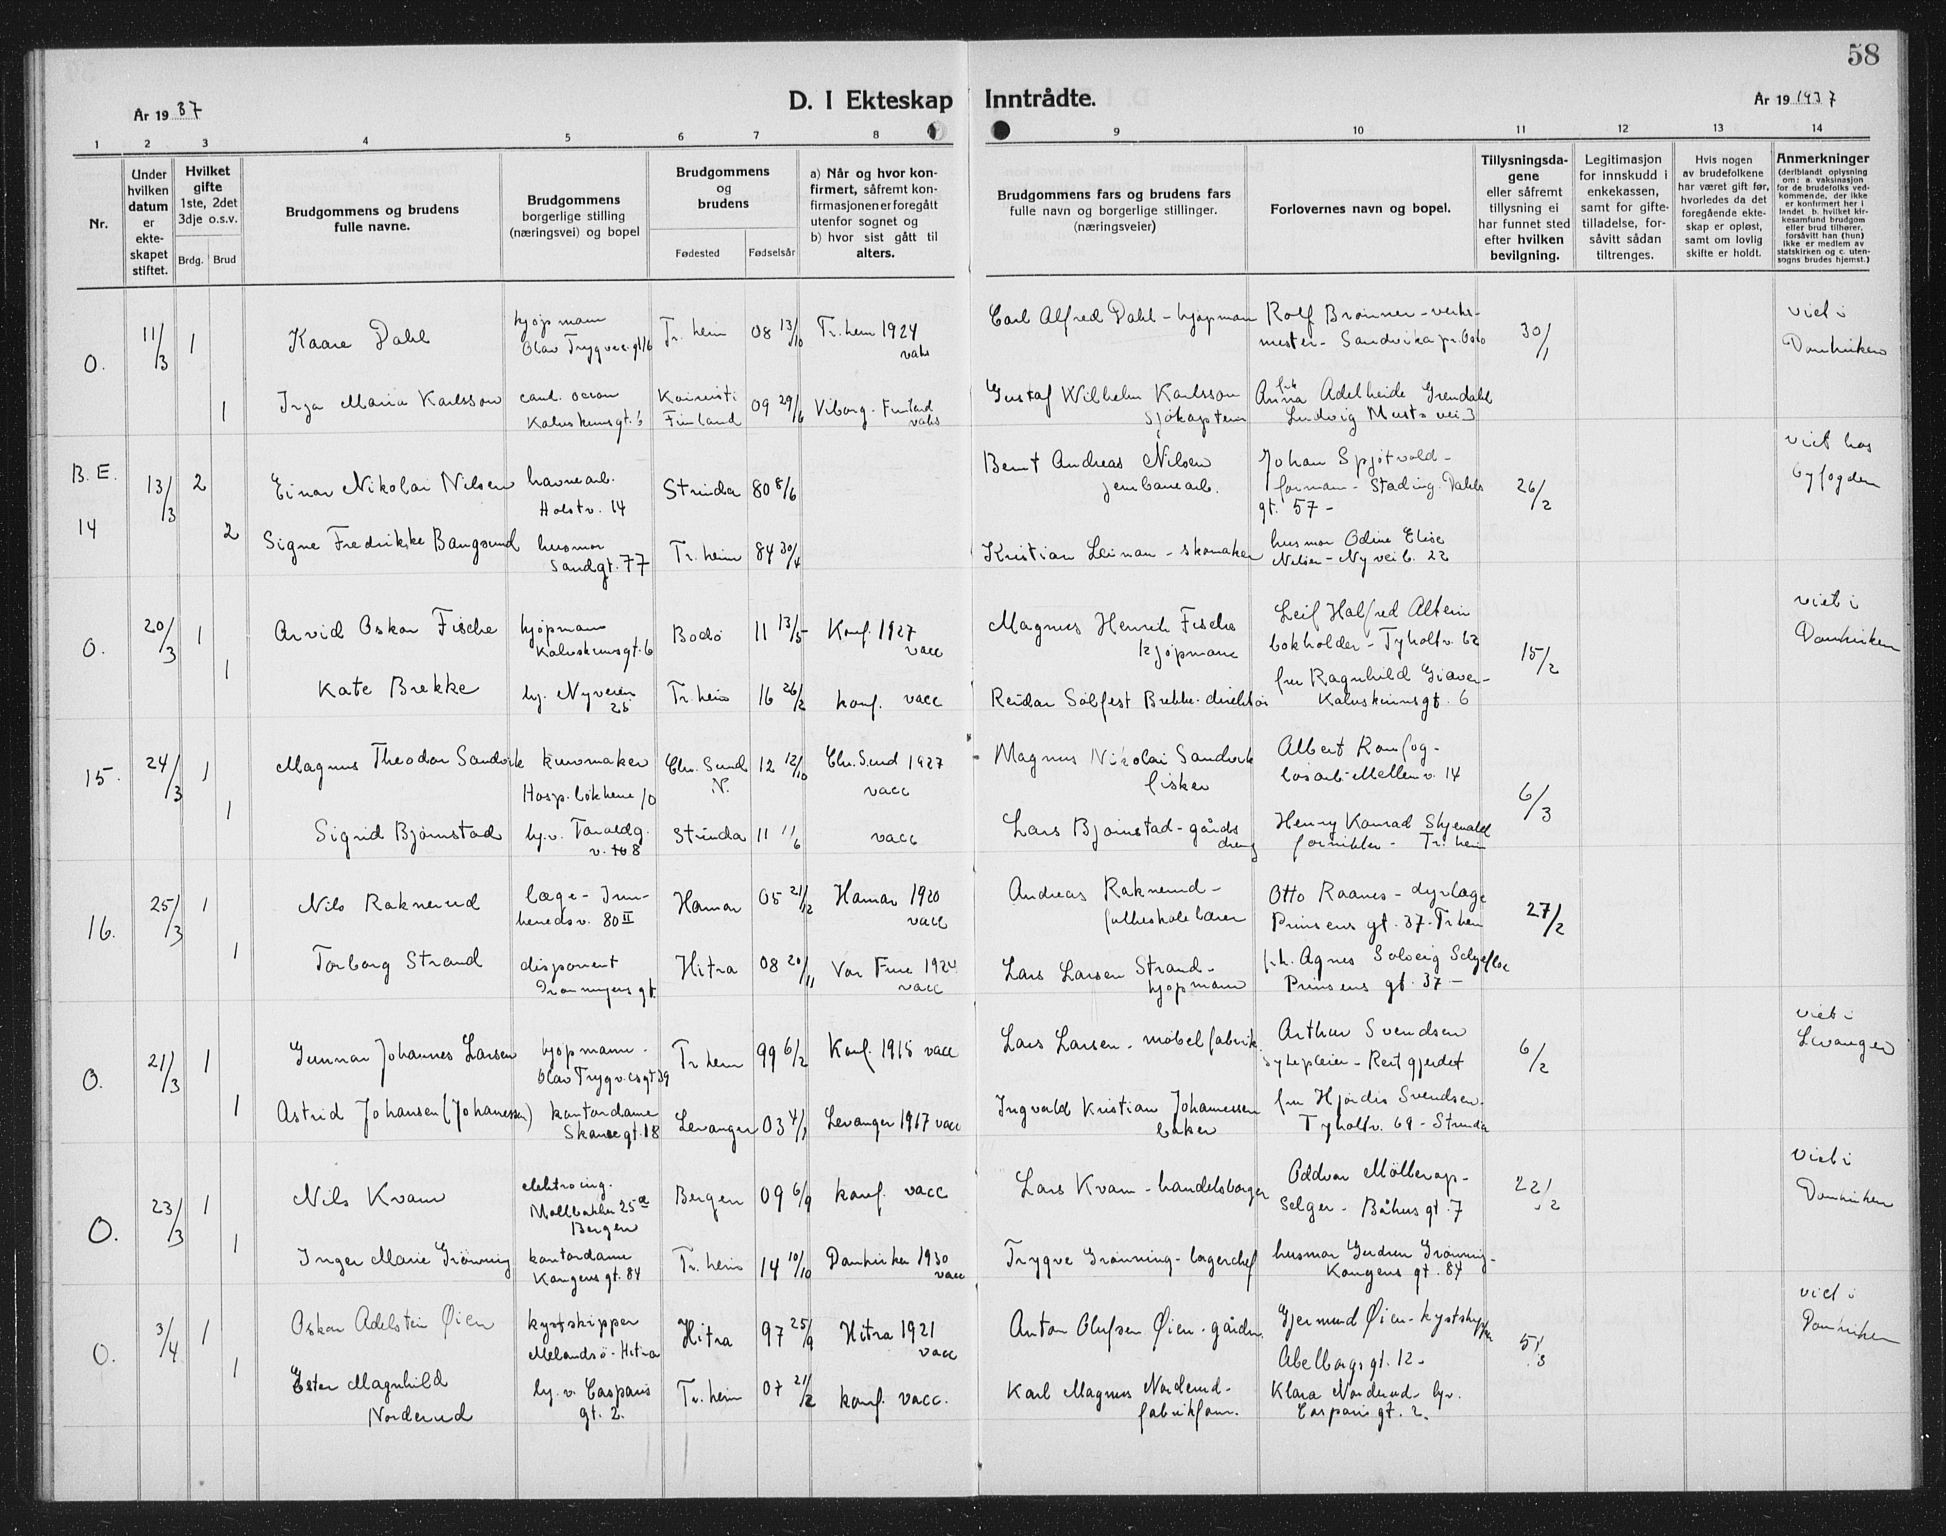 58
D. I Ekteskap Inntrådte.
År 19 37
År 19 1937
1 2 3 4 5 6 7 8 9 10 11 12 13 14
Nr.
Under hvilken datum er ekte-skapet stiftet.
Hvilket gifte 1ste, 2det 3dje o.s.v.
Brdg. Brud
Brudgommens og brudens fulle navne.
Brudgommens borgerlige stilling (næringsvei) og bopel
Brudgommens og brudens
Fødested Fødselsår
a) Når og hvor kon-firmert, såfremt kon-firmasjonen er foregått utenfor sognet og b) hvor sist gått til alters.
Brudgommens fars og brudens fars fulle navn og borgerlige stillinger. (næringsveier)
Forlovernes navn og bopel.
Tillysningsda-gene eller såfremt tillysning ei har funnet sted efter hvilken bevilgning.
Legitimasjon for innskudd i enkekassen, samt for gifte-tilladelse, for-såvitt sådan tiltrenges.
Hvis nogen av brudefolkene har været gift før, hvorledes da det foregående ekte-skap er opløst, samt om lovlig skifte er holdt.
Anmerkninger (deriblandt oplysning om: a. vaksinasjon for de brudefolks ved-kommende, der ikke er konfirmert her i landet b. hvilket kir-kesamfund brudgom eller brud tilhører, forsåvitt han (hun) ikke er medlem av statskirken og c. uten-sogns brudes hjemst.)
O. 11/3 1 Kaare Dahl kjøpmann Olav Trygves.gt 16 Tr.heim 08 13/10 Tr.heim 1924 vaks Carl Alfred Dahl - kjøpmann Rolf Brønner - verks-mester - Sandvika pr. Oslo 30/1 viet i Domkirken
1 Inja Maria Karlsson cand. oecon Kalvskinnsgt. 6 Finland 09 29/6 Viborg - Finland vaks Gustaf Wilhelm Karlsson Sjökaptein frk Anna Adelheide Grendahl Ludvig Musts vei 3
B.E. 14 13/3 2 Einar Nikolai Nilsen havnearb. Holstv. 14 Strinda 80 8/6 Bernt Andreas Nilsen jernbanearb. Johan Spjøtvold - formann - Stadsing. Dahls gt. 57 - 26/2 viet hos byfogden
2 Signe Fredrikke Bangsund husmor Sandgt. 77 Tr.heim 84 30/4 Kristian Leinan - skomaker husmor Odine Elise Nilsen - Nyveib. 22
O. 20/3 1 Arvid Oskar Fische kjøpmann Kalvskinnsgt. 6 Bodö 11 13/5 Konf. 1927 vacc Magnus Henrik Fische kjøpmann Leif Halfred Altern bokholder - Tyholtv. 62 15/2 viet i Domkirken
1 Kate Brekke hj. Nyveien 25 Tr.heim 16 26/2 konf. vacc Reidar Solfest Brekke - direktör fru Ragnhild Giæver - Kalvskinnsgt. 6
15. 24/3 1 Magnus Theodor Sandvik kinomaker Hosp.løkkene 10 Chr. Sund N. 12 12/10 Chr. Sund 1927 vacc Magnus Nikolai Sandvik fisker Albert Romfog - løsarb - Mellemv. 14 6/3
1 Sigrid Bjørnstad hj.v. Taraldg.v. 8 Strinda 11 11/6 vacc Lars Bjørnstad - gårdsdreng Henry Konrad Skjevald fornikler - Tr.heim
16. 25/3 1 Nils Raknerud læge - Inn-herredsv. 80 II Hamar 05 21/12 Hamar 1920 vacc Andreas Raknerud - folkeskolelærer Otto Raanes - dyrlæge Prinsens gt. 37 - Tr.heim 27/2
1 Torborg Strand disponent Dronningens gt. Hitra 08 20/11 Vor Frue 1924 vacc Lars Larsen Strand - kjøpmann frk. Agnes Solveig Selgeflø Prinsens gt. 37 -
O. 21/3 1 Gunnar Johannes Larsen kjøpmann - Olav Trygv.esgt 39 Tr.heim 99 6/2 Konf. 1915 vacc Lars Larsen - möbelfabrik. Arthur Svendsen sykepleier - Reitgjerdet 6/2 viet i Levanger
1 Astrid Johansen (Johannessen) kontordame Skansegt. 18 Levanger 03 4/1 Levanger 1917 vacc Ingvald Kristian Johannessen baker fru Hjørdis Svendsen. Tyholtv. 69 - Strinda
O. 23/3 1 Nils Kvam elektroing. Møllbakken 25 a Bergen Bergen 09 6/9 konf. vacc Lars Kvam - handelsborger Oddvar Möllerop - Selger - Båhus gt. 7 22/2 viet i Domkirken
1 Inger Marie Grönning kontordame Kongens gt. 84 Tr.heim 14 10/10 Domkirken 1930 vacc Trygve Grönning - lagerchef husmor Gudrun Grönning - Kongens gt. 84
O. 3/4 1 Oskar Adelstein Öien kystskipper Melandsö - Hitra Hitra 97 25/9 Hitra 1921 vacc Anton Olufsen Öien - gårdbr. Gjermund Öien - kystskipper Abelborgs gt. 12 - 5/3 viet i Domkirken
1 Ester Magnhild Norderud hj.v. Casparis gt. 2. Tr.heim 07 21/2 konf. vacc. Karl Magnus Norderud - fabrikform. Klara Norderud - hjv. Casparis gt. 2.